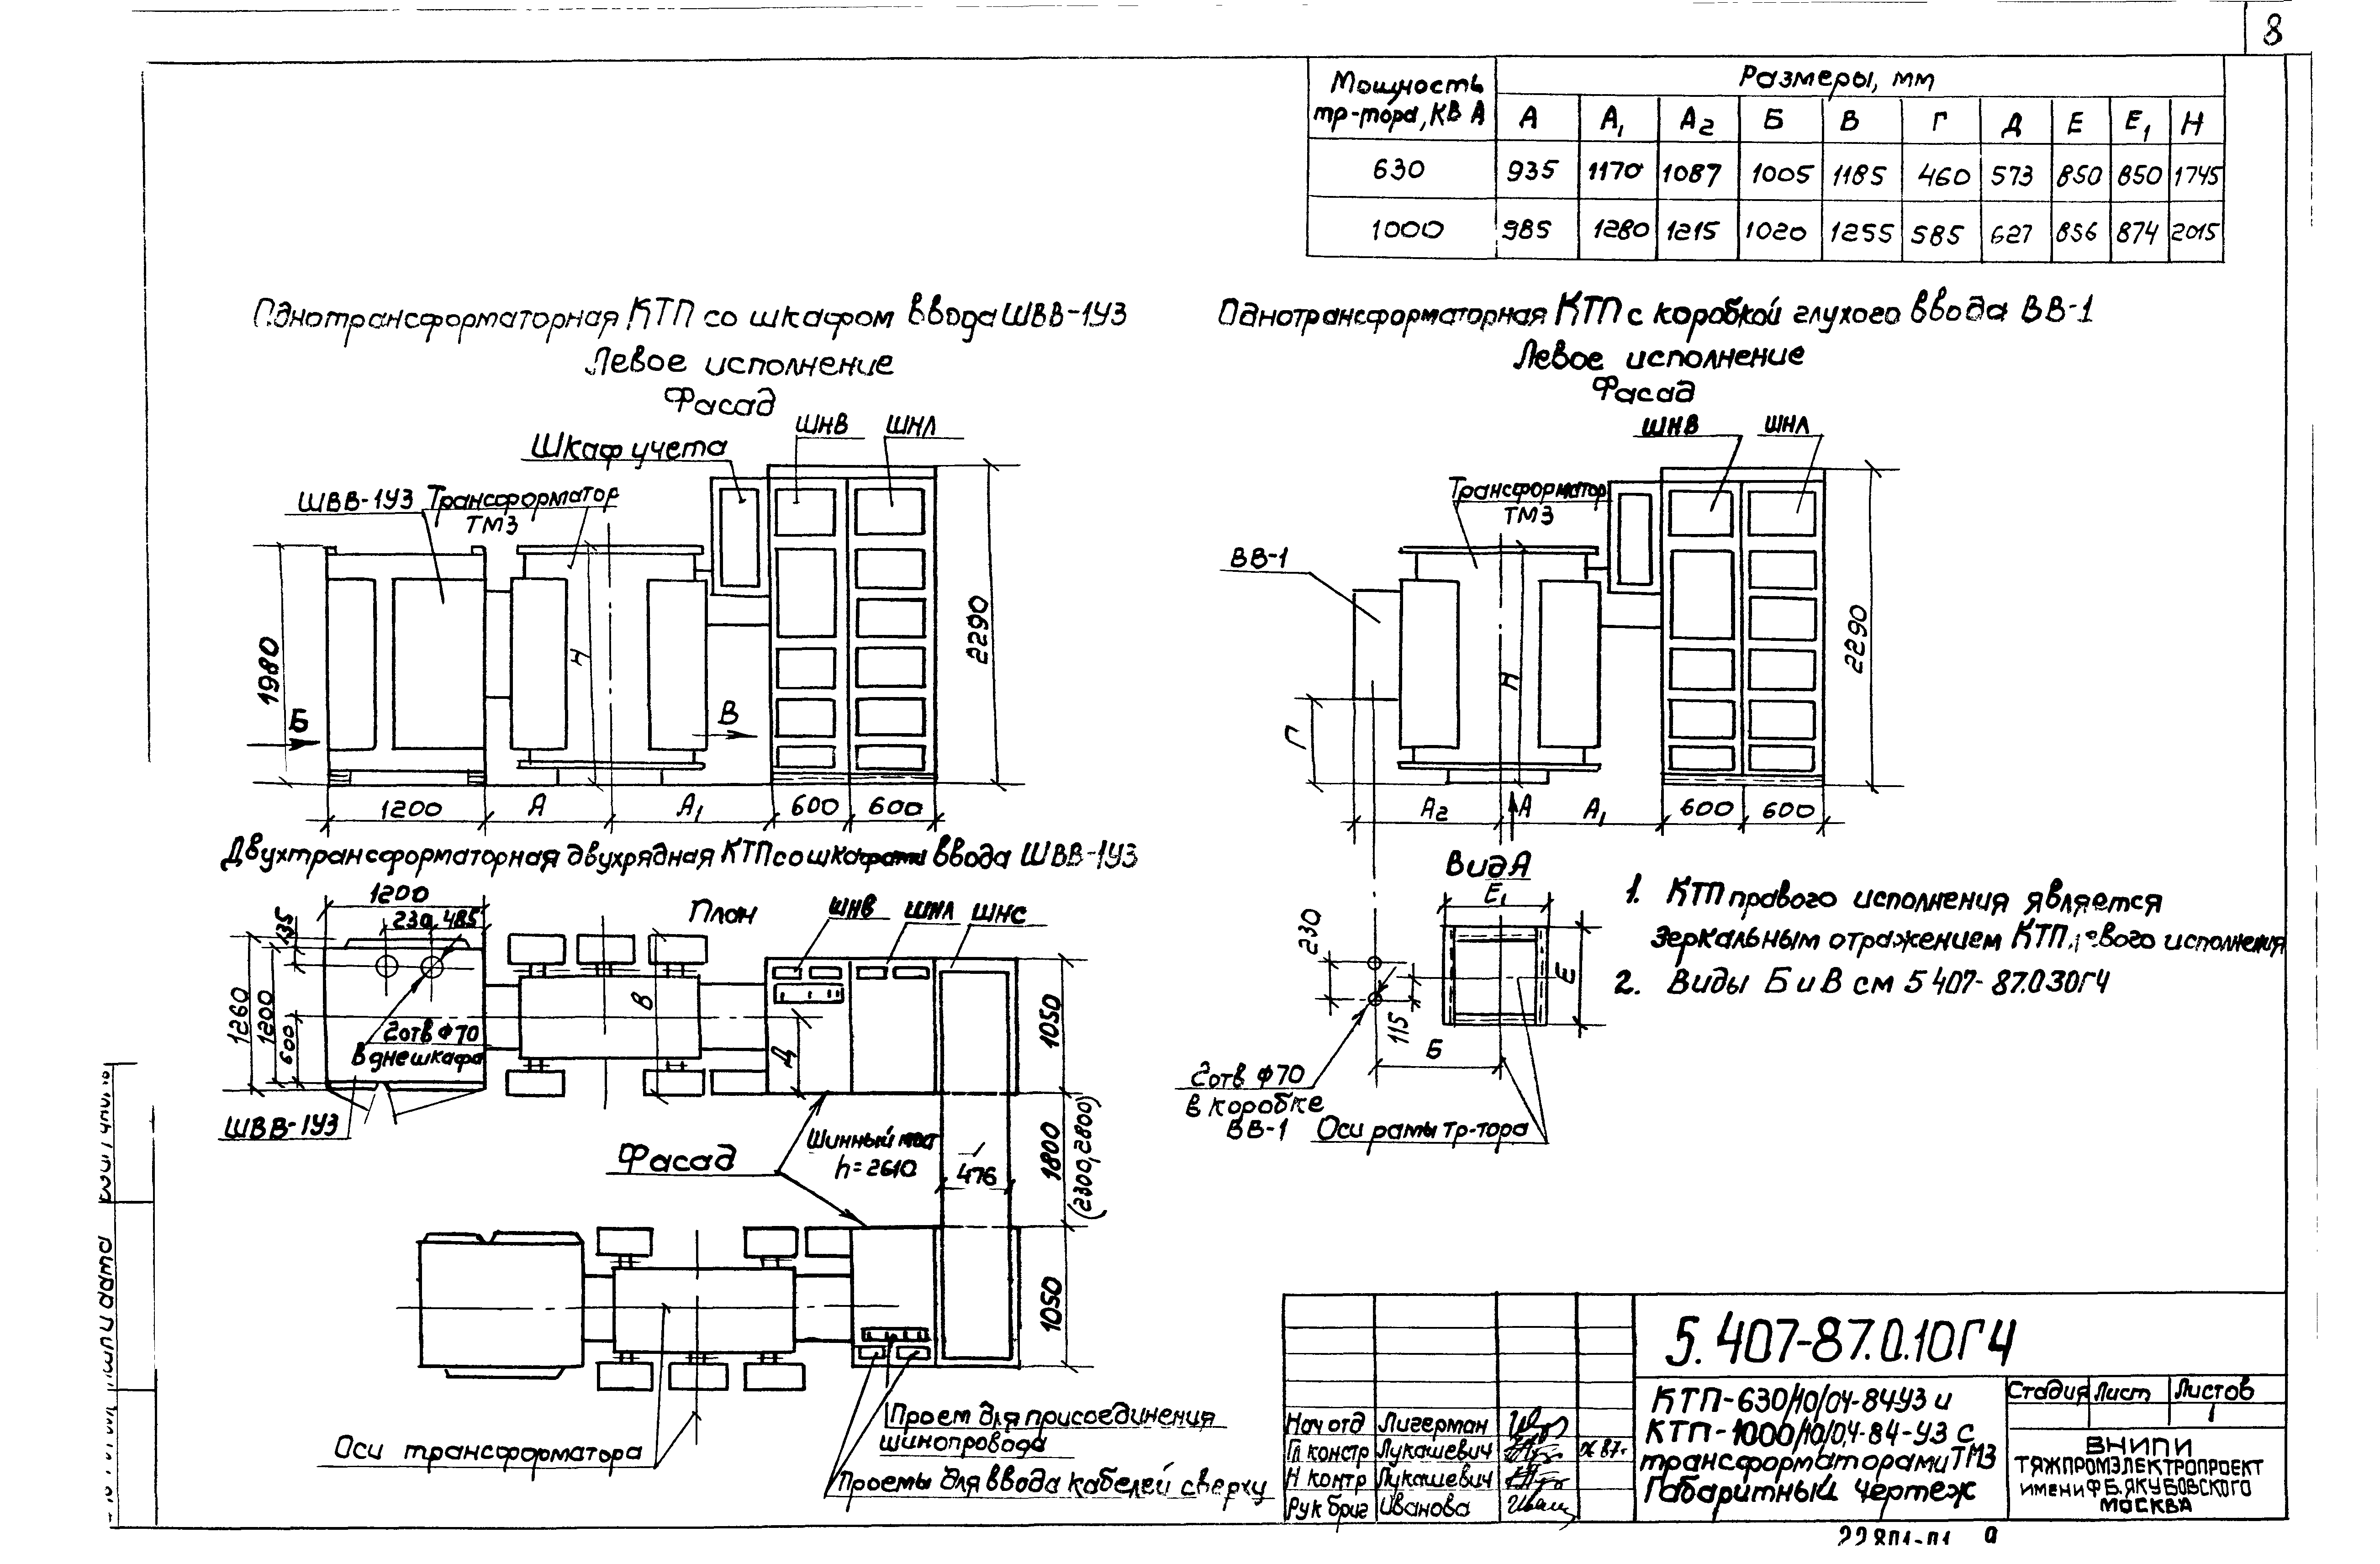 8
Мощность
тр-тора, КВ А
Размеры, мм
А А1 А2 Б В Г Д Е Е1 Н
630 935 1170 1087 1005 1185 460 573 850 850 1745
1000 985 1280 1215 1020 1255 585 627 856 874 2015
Однотрансформаторная КТП со шкафом ввода ШВВ-1У3
Левое исполнение
Фасад
ШНВ ШНЛ
Шкаф учета
ШВВ-1У3 Трансформатор
ТМЗ
1980
Н
2290
Б
В
1200 А А1 600 600
Однотрансформаторная КТП с коробкой глухого ввода ВВ-1
Левое исполнение
Фасад
ШНВ ШНЛ
Трансформатор
ТМЗ
ВВ-1
Н
2290
Г
А2 А А1 600 600
Двухтрансформаторная двухрядная КТП со шкафами ввода ШВВ-1У3
1200
230 485
План
ШНВ ШНЛ ШНС
135
1260
1200
600
2отв Ф70
В дне шкафа
В
Д
1050
ШВВ-1У3
Фасад
Шинный мост
h=2610
476
1800
(2300,2800)
1050
Проем для присоединения
шинопровода
Оси трансформатора
Проемы для ввода кабелей сверху
Вид А
Е1
230
Е
115
Б
2отв Ф70
в коробке
ВВ-1
Оси рамы тр-тора
1. КТП правого исполнения является
зеркальным отражением КТП исполнения
2. Виды Б и В см 5 407-87.0.30ГЧ
5.407-87.0.10ГЧ
КТП-630/10/04-84У3 и
КТП-1000/10/0,4-84-У3 с
трансформаторами ТМЗ
Габаритный чертеж
Стадия Лист Листов
1
ВНИПИ
ТЯЖПРОМЭЛЕКТРОПРОЕКТ
ИМЕНИ Ф Б. ЯКУБОВСКОГО
МОСКВА
Нач отд Лигерман
Гл констр Лукашевич
Н контр Лукашевич
Рук бриг Иванова